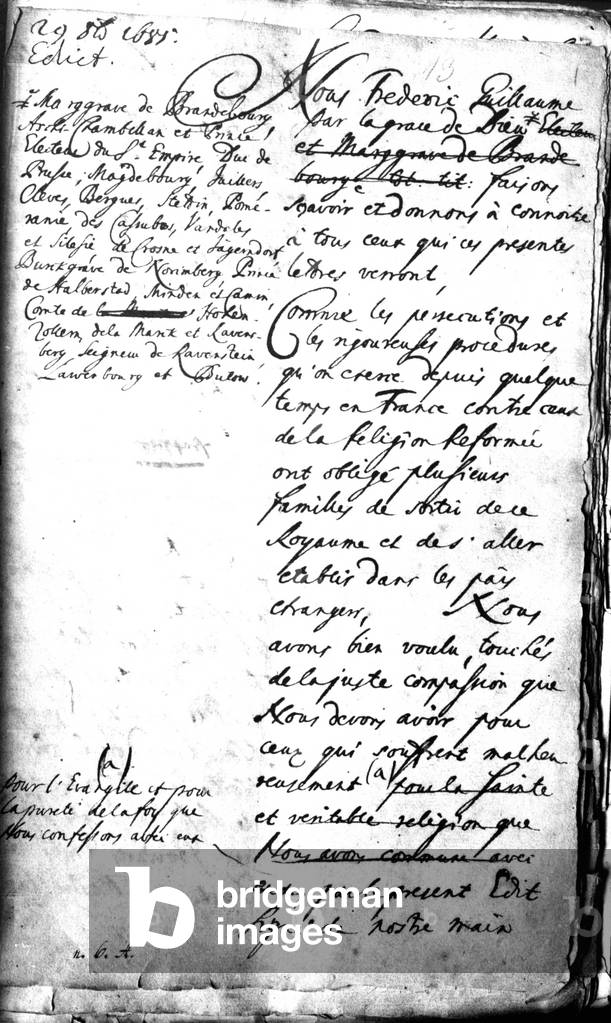 29 8b 1685.
Edict.
13
Nous Frederic Guillaume
par la grace de Dieu # Electeur
et Marggrave de Brande
bourg &c tot. tit: faisons
sçavoir et donnons à connoitre
à tous ceux qui ces presentes
lettres verront,
# Marggrave de Brandebourg
Archi-Chambellan et Prince
Electeur du St. Empire, Duc de
Prusse, Magdebourg, Juilliers,
Cleves, Bergues, Stettin, Pomé-
ranie, des Cassubes, Vandales
et Silesie de Crosne et Jägerndorf
Burkgrave de Norimberg, Prince
de Halberstad, Minden et Camin,
Comte de Hohen-
zollern, de la Mark et Ravens-
berg, Seigneur de Ravenstein,
Lawenbourg et Butow.
Comme les persecutions et
les rigoureuses procedures
qu'on exerce depuis quelque
temps en France contre ceux
de la Religion Reformée
ont obligé plusieurs
familles de sortir de ce
Royaume et de s'aller
etablir dans les païs
etrangers, Nous
avons bien voulu, touchés
de la juste compassion que
Nous devons avoir pour
ceux qui souffrent malheu
reusement (a) pour la sainte
et veritable religion que
Nous avons commune avec
present Edit
nostre main
(a)
pour l'Evangile et pour
la pureté de la foy que
Nous confessons avec eux
n. 6. A.
bridgeman
images